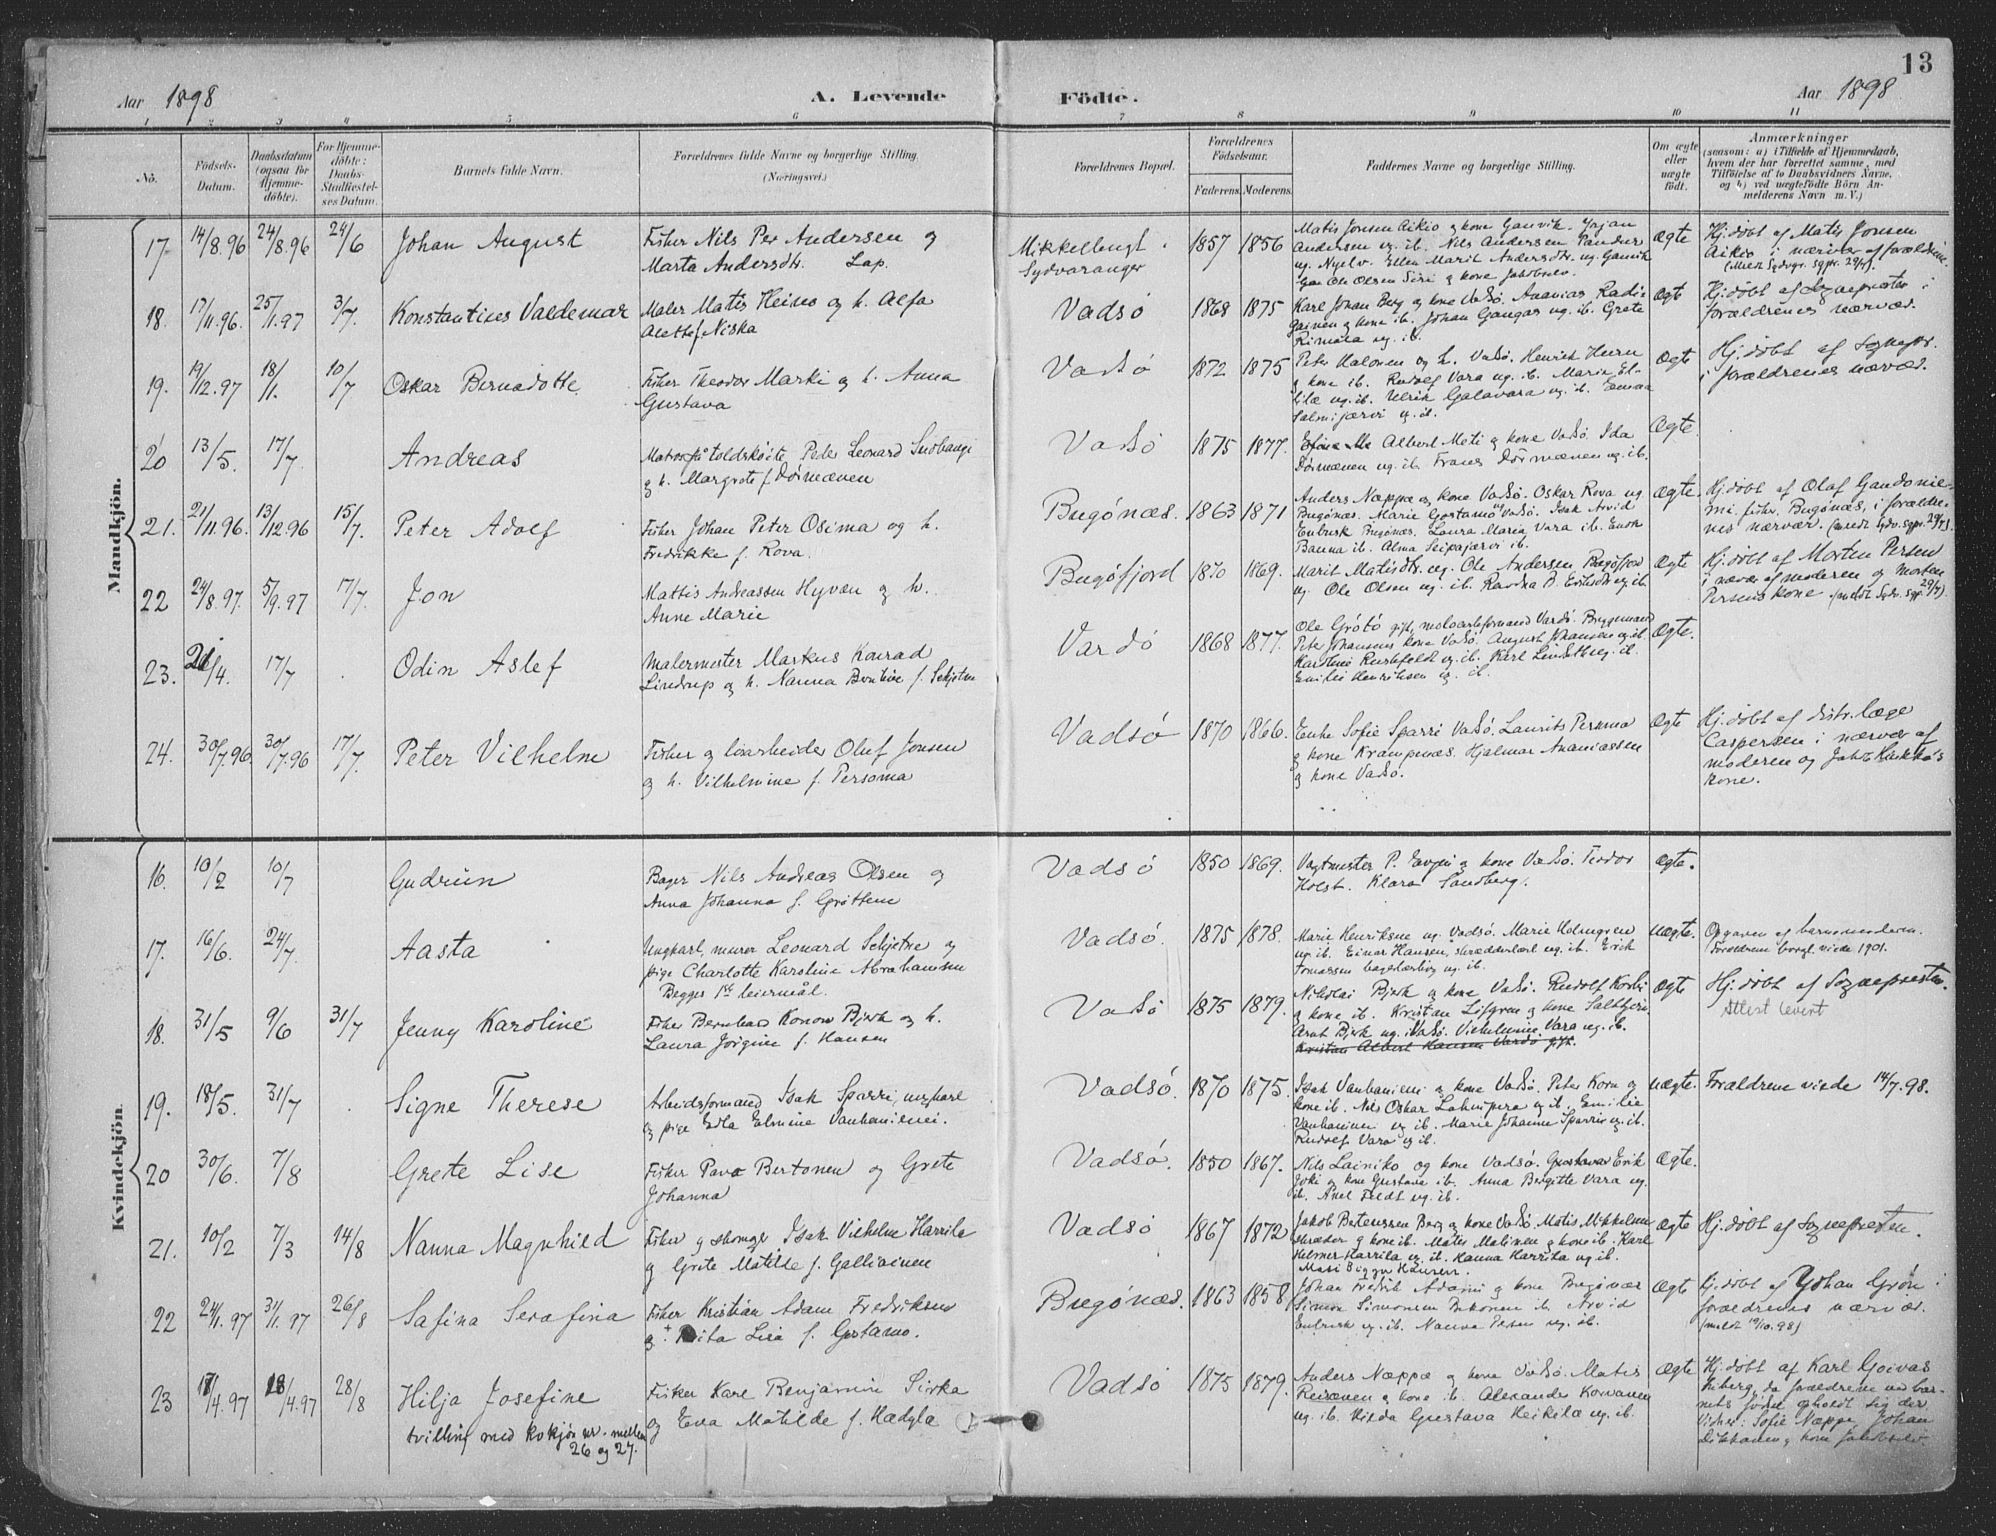 13
Aar 1898
A. Levende
Födte.
Aar 1898
1 2 3 4 5 6 7 8 9 10 11
No.
Födsels-
Datum.
Daabsdatum
(ogsaa for
Hjemme-
döbte).
For Hjemme-
döbte:
Daabs-
Stadfæstel-
ses Datum.
Barnets fulde Navn.
Forældrenes fulde Navne og borgerlige Stilling.
(Næringsvei.)
Forældrenes Bopæl.
Forældrenes
Födselsaar.
Faderens. Moderens.
Faddernes Navne og borgerlige Stilling.
Om ægte
eller
uægte
födt.
Anmærkninger
(saasom: a) i Tilfælde af Hjemmedaab,
hvem der har forrettet samme, med
Tilföielse af to Daabsvidners Navne,
og b) ved uægtefödte Börn An-
melderens Navn m. V.)
Mandkjön.
17. 14/8.96 24/8.96 24/6 Johan August
Fisker Nils Per Andersen og
Marta Andersdtr. Lap.
Mikkelsnes
Sydvaranger
1857 1856
Matis Jonsen Aikio og kone Ganvik.
Andersen ug. ib. Nils Andersen
ug. Nyelv. Ellen Marit Andersdtr. ug. Ganvik
Ole Olsen Siri og kone Jakobselv.
Ægte
Hj.döbt af Matis Jonsen
Aikio i nærvær af forældrene
(meldt Sydvgr. sgpr. 29/7).
18. 17/11.96. 25/1.97 3/7. Konstantines Valdemar
Maler Matis Heino og h. Alfa
Alette f. Niska
Vadsö
1868 1875
Karl Johan Berg og kone Vadsö. Ananias
og kone ib. Johan Gangas ug. ib. Grete
Rimala ug. ib.
Ægte
Hj.döbt af Sognepresten i
forældrenes nærvær.
19. 19/12.97 18/1. 10/7 Oskar Bernadotte.
Fisker Theodor Marki og h. Anna
Gustava
Vadsö
1872 1875
Peter Halonen og h. Vadsö. Henrik
og kone ib. Rudolf Vara ug. ib. Maria
ug. ib. Ulrik Galavara ug. ib. Emma
Salmijærvi ug. ib.
Ægte
Hj.döbt af Sognepr.
i forældrenes nærvær.
20 13/5. 17/7. Andreas
Matros på toldsköite Peter Leonard
og h. Margrete f. Dörmænen
Vadsö
1875 1877.
Albert Mati og kone Vadsö. Ida
Dörmænen ug. ib. Frans Dörmænen ug. ib.
Ægte.
21. 21/11.96. 13/12.96 15/7. Peter Adolf
Fisker Johan Peter Osima og h.
Fredrikke f. Rova.
Bugönæs.
1863 1871
Anders Næppæ og kone Vadsö. Oskar Rova ug.
Bugönæs. Marie Gostamo Vadsö. Isak Arvid
Enbusk Bugönæs. Laura Maria Vara ib.
Banna ib. Alma Seipajærvi ib.
Ægte
Hj.döbt af Olaf
fisker, Bugönæs, i forældre-
nes nærvær. (meldt Sydv. sgpr. 29/7).
22 24/8.97. 5/9.97 17/7. Jon
Mattis Andreassen Hyvæn og h.
Anne Marie
Bugöfjord
1870 1869.
Marit Matisdtr. ug. Ole Andersen Bugöfjord
ug. Ole Olsen ug. ib. Ravdna P. Eriksdtr. ug. ib.
Ægte
Hj.döbt af Morten Persen
i nærvær af moderen og Morten
Persens kone (meldt Sydv. sgpr. 29/7).
23. 21/4. 17/7 Odin Aslef
Malermester Markus Konrad
Lindrup og h. Nanna Bentine f. Schjetne
Vardö
1868 1877.
Ole Grötö gift, Vardö. Bryggemand
Peter Johansens kone Vadsö. August Johansen ug. ib.
Karoline Rushfeldt ug. ib. Karl Lindseth ug. ib.
Emilie Henriksen ug. ib.
Ægte.
24. 30/7.96 30/7.96 17/7. Peter Vilhelm
Fisker og löiarbeider Oluf Jonsen
og h. Vilhelmine f. Persoma
Vadsö
1870 1866.
Enke Sofie Sparri Vadsö. Laurits Persoma
og kone Krampenæs. Hjalmar Ananiassen
og kone Vadsö.
Ægte
Hj.döbt af distr.læge
Caspersen i nærvær af
moderen og Joh.
kone.
Kvindekjön.
16. 10/2 10/7 Gudrun
Bager Nils Andreas Olsen og
Anna Johanna f. Gröttem
Vadsö
1850 1869.
Vagtmester P. og kone Vadsö. Teodor
Holst. Klara Sandberg.
Ægte.
17. 16/6. 24/7. Aasta
Ungkarl, murer Leonard Schjetne og
pige Charlotte Karoline Abrahamsen
Begges 1ste leiermål.
Vadsö.
1875 1878.
Marie Henriksen ug. Vadsö. Marie Holmgren
ug. ib. Einar Hansen, skrædderlærl. ug. ib. Erik
Tomassen bagerlærling ug. ib.
uægte.
Opgaven af barnemoderen.
Forældrene borgl. viede 1901.
18. 31/5 9/6 31/7 Jenny Karoline
Fisker Bernhard Konow Bjerk og h.
Laura Jörgine f. Hansen
Vadsö
1875 1879.
Nikolai Bjerk og kone Vadsö. Rudolf
og kone ib. Kristian og kone
Arnt Bjerk ug. Vadsö. Vilhelmine Vara ug. ib.
Kristian Albert Hansen Vardö gift.
Ægte
Hj.döbt af Sognepresten.
Attest levert
19. 18/5. 31/7 Signe Therese
Arbeidsformand Isak Sparri, ungkarl
og pige Edla Elmine Vanhaniemi.
Vadsö.
1870 1875.
Isak Vanhaniemi og kone Vadsö. Peter Korn og
kone ib. Nils Oskar Lahnipera ug. ib. Emilie
Vanhaninen ug. ib. Marie Johanne Sparri ug. ib.
Rudolf Vara ug. ib.
uægte.
Forældrene viede 14/7.98.
20 30/6. 7/8 Grete Lise
Fisker Pava Bertonen og Grete
Johanna
Vadsö.
1850 1867.
Nils Lainiko og kone Vadsö. Gustava Erik
Joki og kone Gustava ib. Anna Bergitte Vara ug.
ib. Axel Feldt ug. ib.
Ægte.
21. 10/2 7/3 14/8 Nanna Magnhild
Fisker og skomager Isak Vilhelm Harrila
og Grete Matilde f. Galliainen
Vadsö
1867 1872
Jakob Bertenssen Berg og kone Vadsö. Matis Mikkelsen
skræder og kone ib. Mates Malinen og kone ib. Karl
Helmer Harrila ug. ib. Hanna Harrila ug. ib.
Ægte
Hj.döbt af Sognepresten.
22 24/1.97 31/1.97 26/8 Safina Serafina
Fisker Kristian Adam Fredriksen
og Brita Lisa f. Gostamo.
Bugönæs.
1863 1858
Johan Fredrik Adami og kone Bugönæs
Simon Simonsen ib. Arvid
Enbusk ug. ib. Nanna Persen ug. ib.
Ægte
Hj.döbt af Johan Grön i
forældrenes nærvær.
(meldt 19/10.98)
23 17/4.97 18/4.97 28/8 Hilja Josefine
tvilling med kvkjön nr. mellem
26 og 27.
Fisker Karl Benjamin Sirka
og Eva Matilde f. Hædyla
Vadsö
1875 1879.
Anders Næppæ og kone Vadsö. Matis
Reisænen og kone ib. Alexander Korvanen
ug. ib. Hilda Gustava Heikila ug. ib.
Ægte
Hj.döbt af Karl Goivas
Kiberg, da forældrene ved bar-
nets födsel opholdt sig der
Vidner: Sofie Næppe, Johan
og kone Jakobselv.